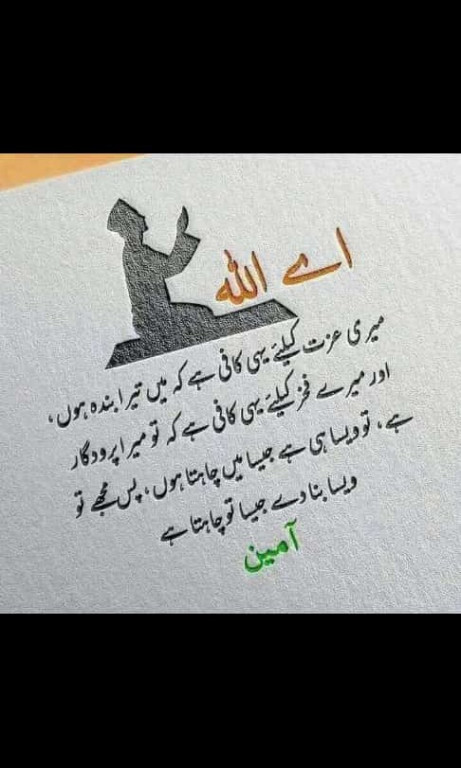 اے اللہ
میری عزت کیلئے یہی کافی ہے کہ میں تیرا بندہ ہوں،
اور میرے فخر کیلئے یہی کافی ہے کہ تو میرا پرودگار
ہے، تو ویسا ہی ہے جیسا میں چاہتا ہوں، پس مجھے تو
ویسا بنا دے جیسا تو چاہتا ہے
آمین